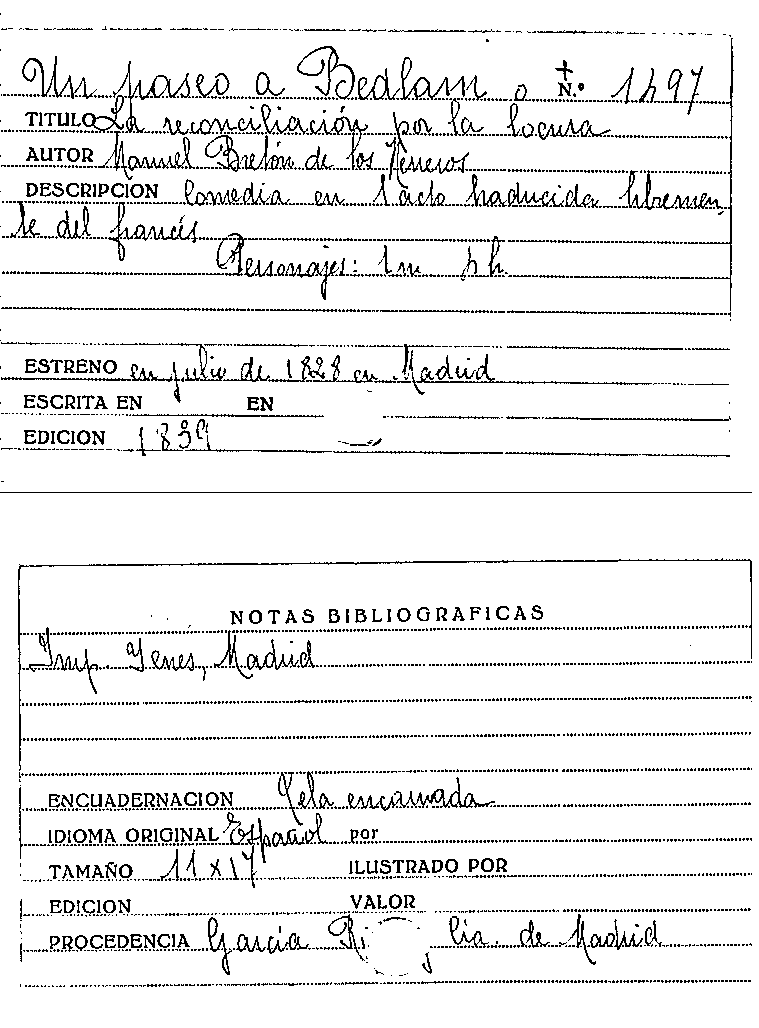 Un paseo a Bedlam o + N.º 1497
TITULO La reconciliación por la locura
AUTOR Manuel Bretón de los Herreros
DESCRIPCION Comedia en 1 acto traducida libremen-
te del francés
Personajes: 1m h
ESTRENO en julio de 1828 en Madrid
ESCRITA EN EN
EDICION 1839
NOTAS BIBLIOGRAFICAS
Imp. Yenes, Madrid
ENCUADERNACION Tela encarnada
IDIOMA ORIGINAL Español por
TAMAÑO 11 x 17 ILUSTRADO POR
EDICION VALOR
PROCEDENCIA García lia. de Madrid